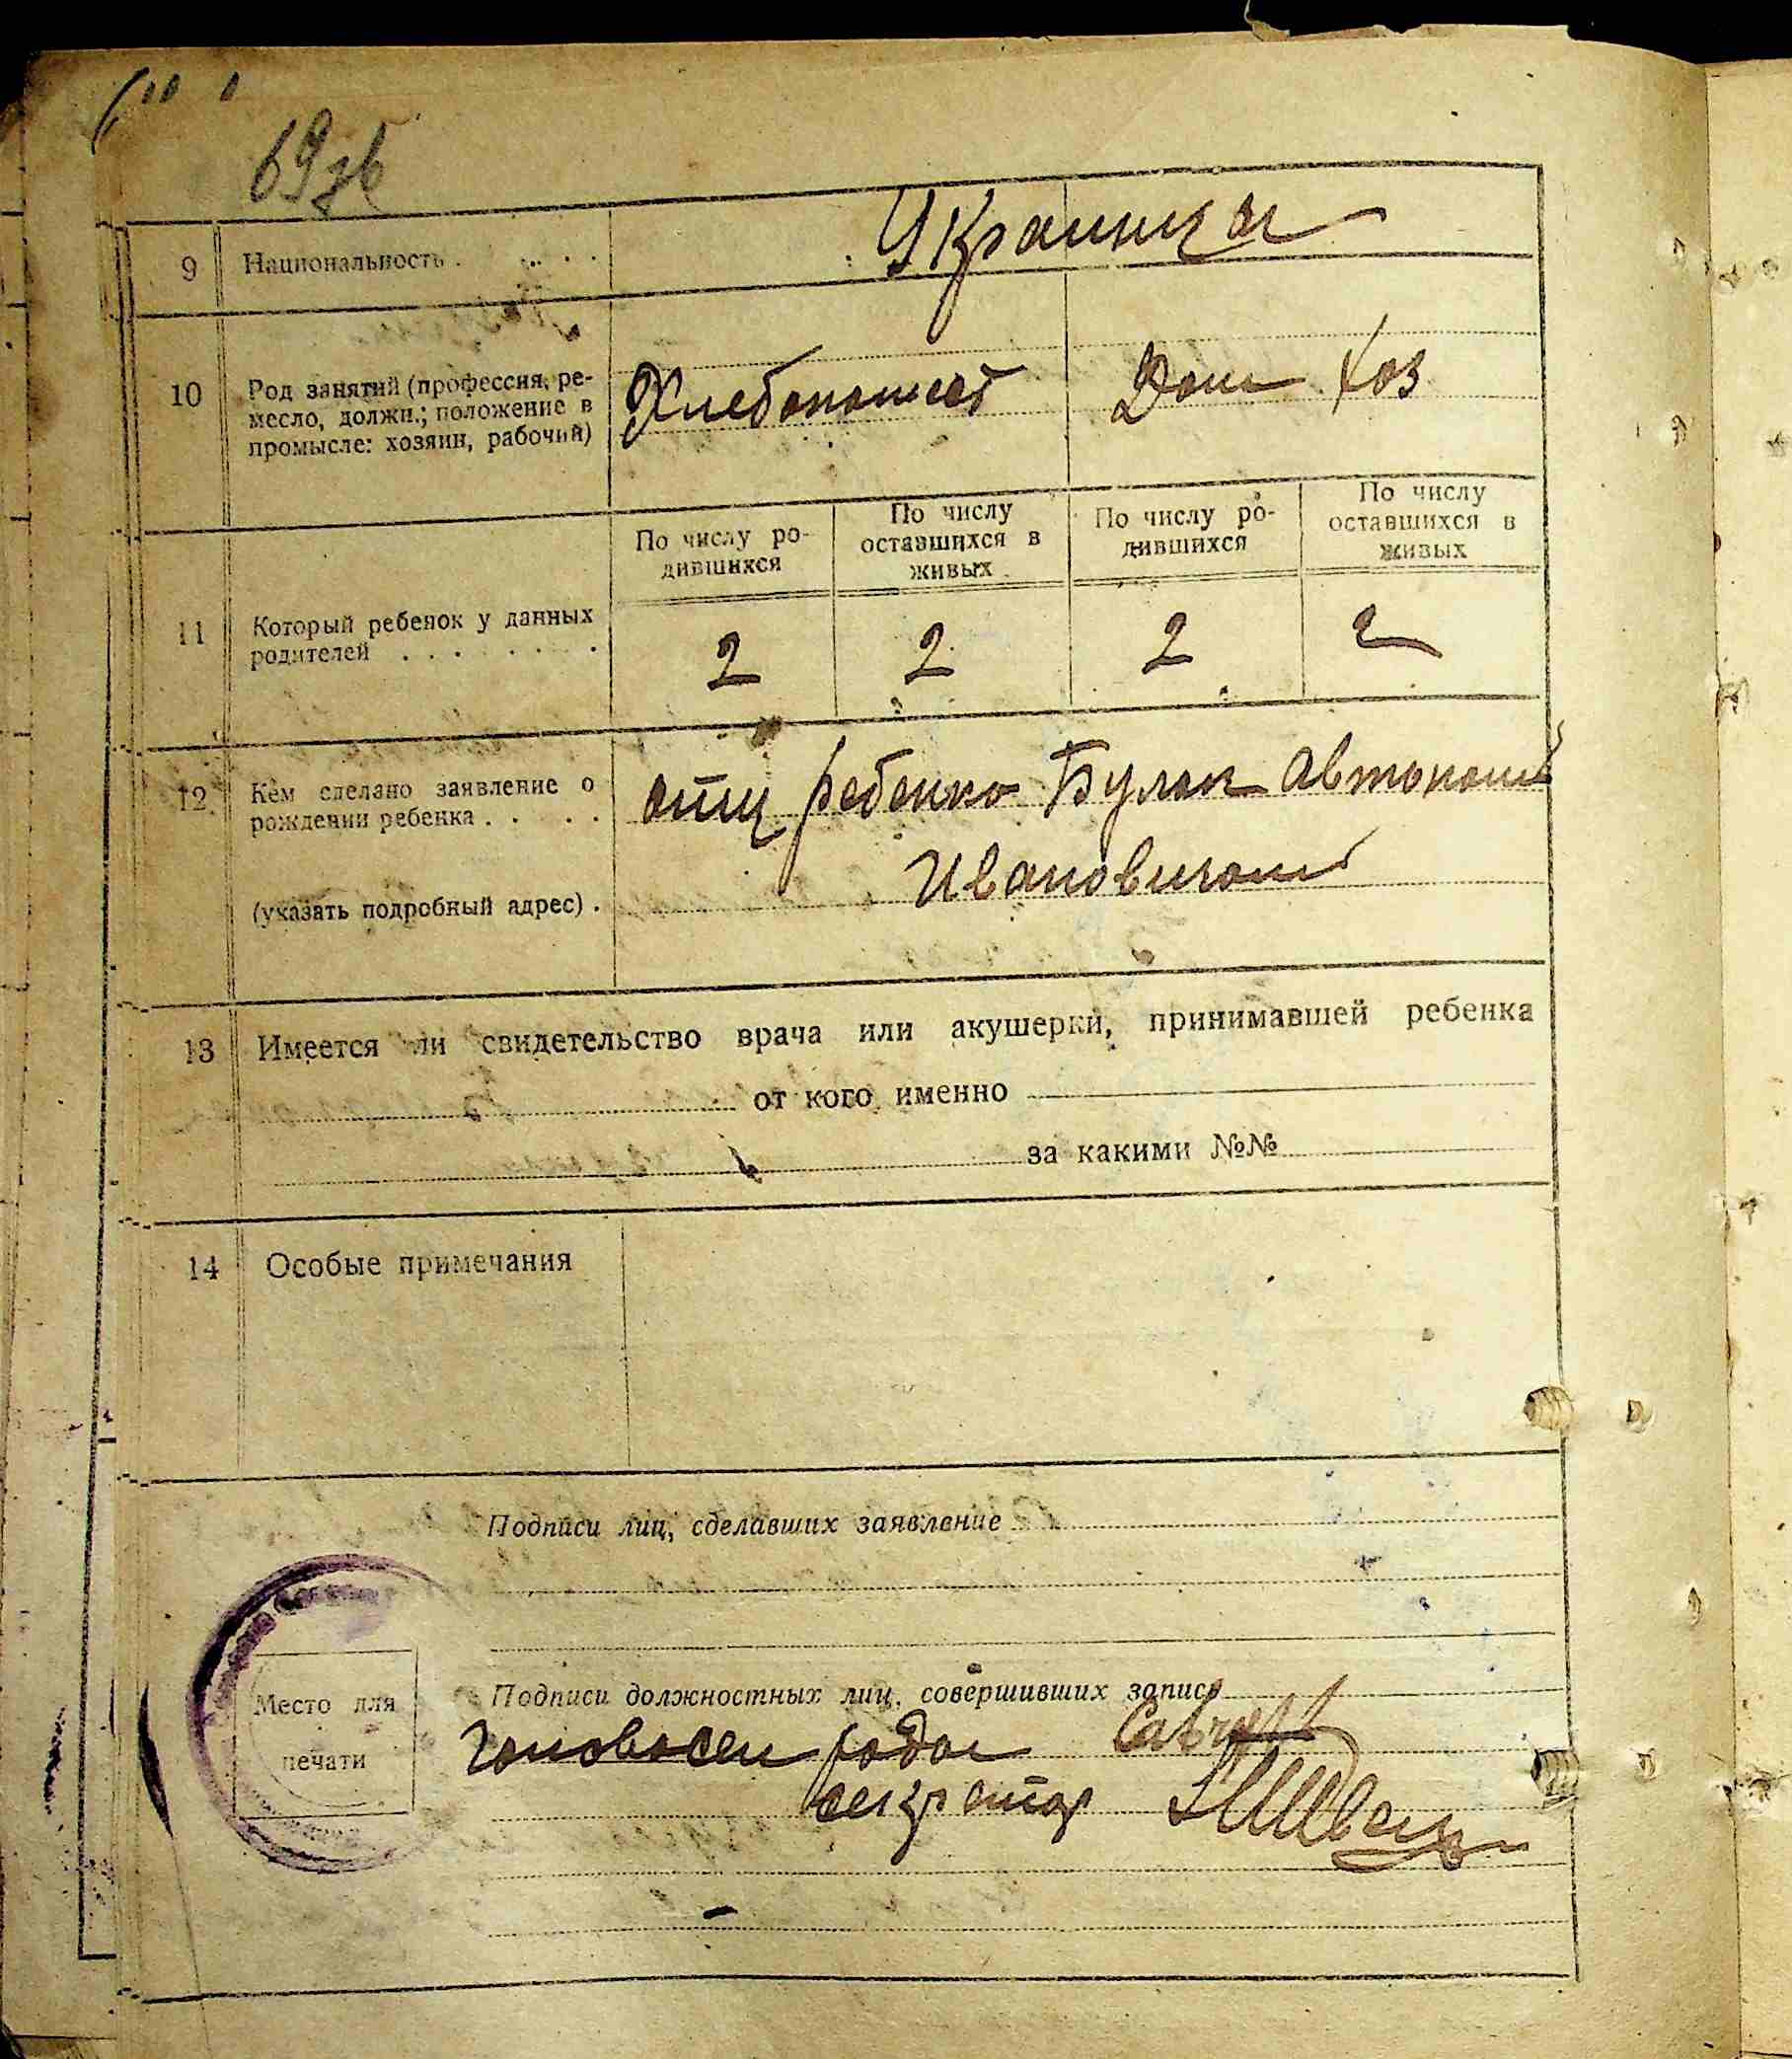 69зв
9 Национальность . . . . .
Украинцы
10 Род занятий (профессия, ре-
месло, должн.; положение в
промысле: хозяин, рабочий)
Хлебопашест Дом хоз
По числу ро-
дившихся
По числу
оставшихся в
живых
По числу ро-
дившихся
По числу
оставшихся в
живых
11 Который ребенок у данных
родителей . . . . . . .
2 2 2 2
12 Кем сделано заявление о
рождении ребенка . . . .
(указать подробный адрес) .
отц ребенка Булах Автоном
Ивановичом
13 Имеется ли свидетельство врача или акушерки, принимавшей ребенка
от кого именно
за какими №№
14 Особые примечания
Подписи лиц, сделавших заявление
Место для
печати
Подписи должностных лиц, совершивших запись
Голова сел ради
секретар Швец